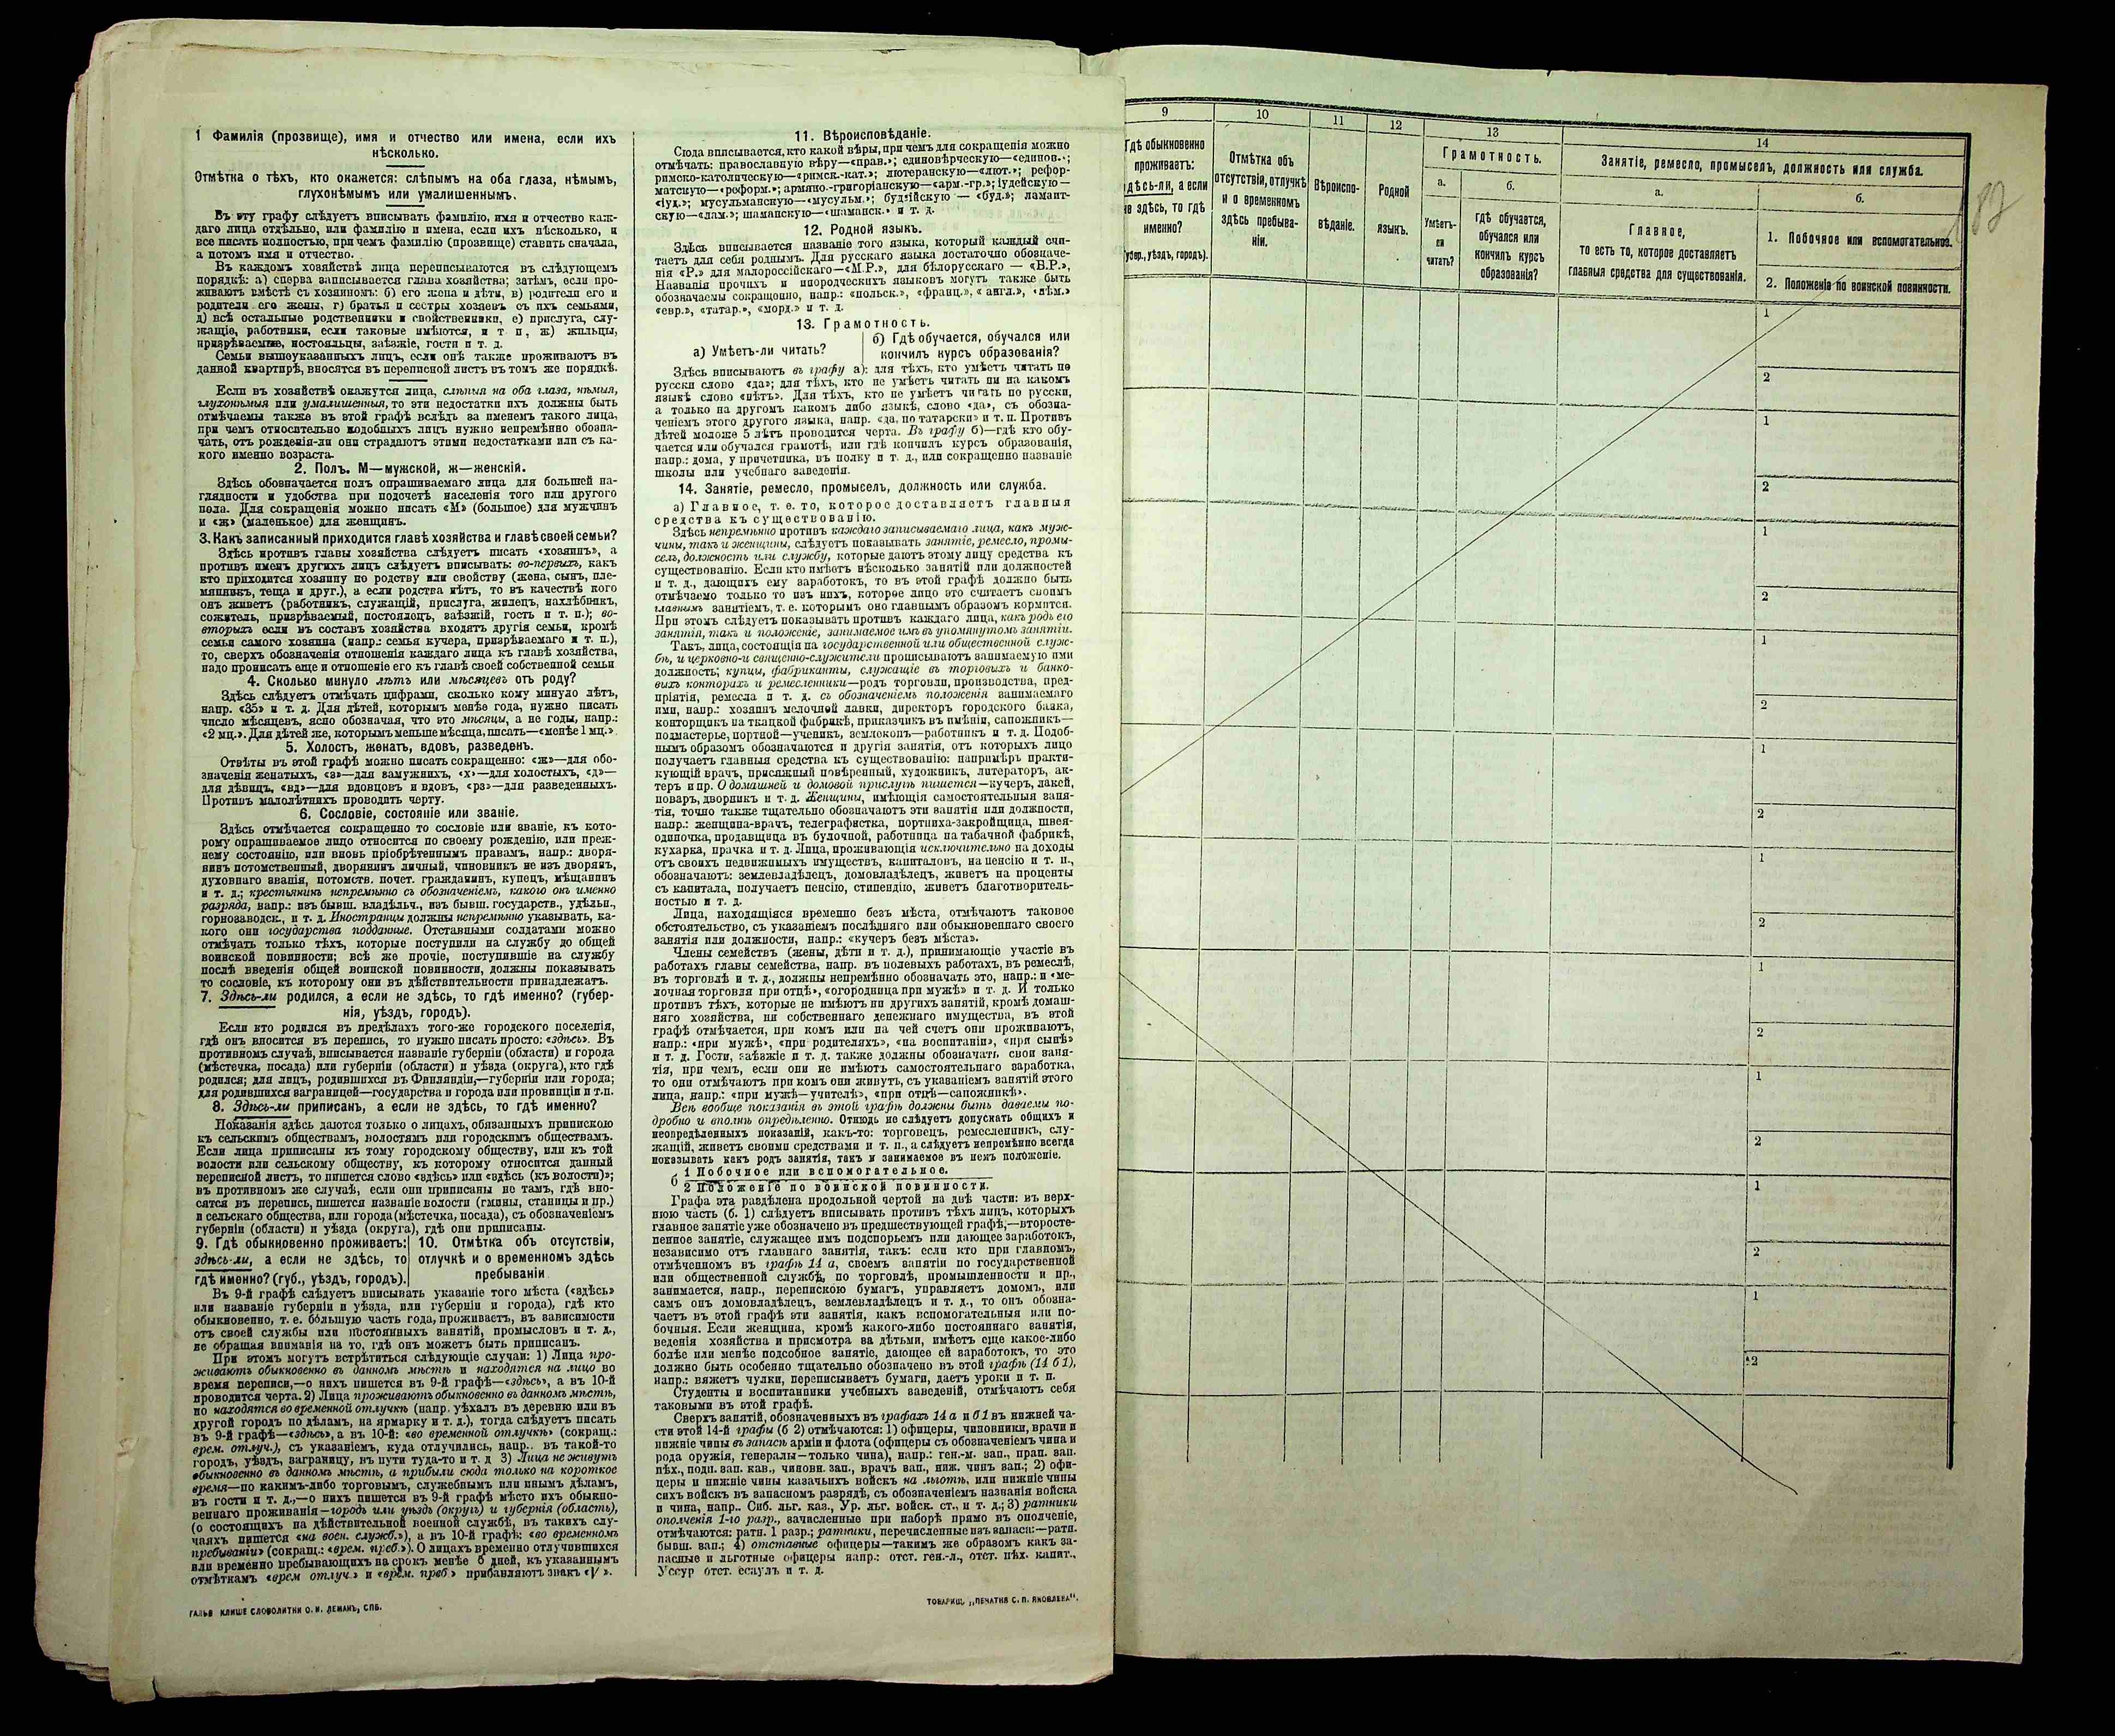 1 Фамилія (прозвище), имя и отчество или имена, если ихъ
нѣсколько.
Отмѣтка о тѣхъ, кто окажется: слѣпымъ на оба глаза, нѣмымъ,
глухонѣмымъ или умалишеннымъ.
Въ эту графу слѣдуетъ вписывать фамилію, имя и отчество каж-
даго лица отдѣльно, или фамилію и имена, если ихъ нѣсколько, и
все писать полностью, при чемъ фамилію (прозвище) ставить сначала,
а потомъ имя и отчество.
Въ каждомъ хозяйствѣ лица переписываются въ слѣдующемъ
порядкѣ: а) сперва записывается глава хозяйства; затѣмъ, если про-
живаютъ вмѣстѣ съ хозяиномъ: б) его жена и дѣти, в) родители его и
родители его жены, г) братья и сестры хозяевъ съ ихъ семьями,
д) всѣ остальные родственники и свойственники, е) прислуга, слу-
жащіе, работники, если таковые имѣются, и т п, ж) жильцы,
призрѣваемые, постояльцы, заѣзжіе, гости и т. д.
Семьи вышеуказанныхъ лицъ, если онѣ также проживаютъ въ
данной квартирѣ, вносятся въ переписной листъ въ томъ же порядкѣ.
Если въ хозяйствѣ окажутся лица, слѣпыя на оба глаза, нѣмыя,
глухонѣмыя или умалишенныя, то эти недостатки ихъ должны быть
отмѣчаемы также въ этой графѣ вслѣдъ за именемъ такого лица,
при чемъ относительно подобныхъ лицъ нужно непремѣнно обозна-
чать, отъ рожденія-ли они страдаютъ этими недостатками или съ ка-
кого именно возраста.
2. Полъ. М—мужской, ж—женскій.
Здѣсь обозначается полъ опрашиваемаго лица для большей на-
глядности и удобства при подсчетѣ населенія того или другого
пола. Для сокращенія можно писать «М» (большое) для мужчинъ
и «ж» (маленькое) для женщинъ.
3. Какъ записанный приходится главѣ хозяйства и главѣ своей семьи?
Здѣсь противъ главы хозяйства слѣдуетъ писать «хозяинъ», а
противъ именъ другихъ лицъ слѣдуетъ вписывать: во-первыхъ, какъ
кто приходится хозяину по родству или свойству (жена, сынъ, пле-
мянникъ, теща и друг.), а если родства нѣтъ, то въ качествѣ кого
онъ живетъ (работникъ, служащій, прислуга, жилецъ, нахлѣбникъ,
сожитель, призрѣваемый, постоялецъ, заѣзжій, гость и т. п.); во-
вторыхъ если въ составъ хозяйства входятъ другія семьи, кромѣ
семьи самого хозяина (напр.: семья кучера, призрѣваемаго и т. п.),
то, сверхъ обозначенія отношенія каждаго лица къ главѣ хозяйства,
надо прописать еще и отношеніе его къ главѣ своей собственной семьи
4. Сколько минуло лѣтъ или мѣсяцевъ отъ роду?
Здѣсь слѣдуетъ отмѣчать цифрами, сколько кому минуло лѣтъ,
напр. «35» и т. д. Для дѣтей, которымъ менѣе года, нужно писать
число мѣсяцевъ, ясно обозначая, что это мѣсяцы, а не годы, напр.:
«2 мц.». Для дѣтей же, которымъ меньше мѣсяца, писать—«менѣе 1 мц.».
5. Холостъ, женатъ, вдовъ, разведенъ.
Отвѣты въ этой графѣ можно писать сокращенно: «ж»—для обо-
значенія женатыхъ, «з»—для замужнихъ, «х»—для холостыхъ, «д»—
для дѣвицъ, «вд»—для вдовцовъ и вдовъ, «рз»—для разведенныхъ.
Противъ малолѣтнихъ проводить черту.
6. Сословіе, состояніе или званіе.
Здѣсь отмѣчается сокращенно то сословіе или званіе, къ кото-
рому опрашиваемое лицо относится по своему рожденію, или преж-
нему состоянію, или вновь пріобрѣтеннымъ правамъ, напр.: дворя-
нинъ потомственный, дворянинъ личный, чиновникъ не изъ дворянъ,
духовнаго званія, потомств. почет. гражданинъ, купецъ, мѣщанинъ
и т. д.; крестьянинъ непремѣнно съ обозначеніемъ, какого онъ именно
разряда, напр.: изъ бывш. владѣльч., изъ бывш. государств., удѣльн.,
горнозаводск., и т. д. Иностранцы должны непремѣнно указывать, ка-
кого они государства подданные. Отставными солдатами можно
отмѣчать только тѣхъ, которые поступили на службу до общей
воинской повинности; всѣ же прочіе, поступившіе на службу
послѣ введенія общей воинской повинности, должны показывать
то сословіе, къ которому они въ дѣйствительности принадлежатъ.
7. Здѣсь-ли родился, а если не здѣсь, то гдѣ именно? (губер-
нія, уѣздъ, городъ).
Если кто родился въ предѣлахъ того-же городского поселенія,
гдѣ онъ вносится въ перепись, то нужно писать просто: «здѣсь». Въ
противномъ случаѣ, вписывается названіе губерніи (области) и города
(мѣстечка, посада) или губерніи (области) и уѣзда (округа), кто гдѣ
родился; для лицъ, родившихся въ Финляндіи,—губерніи или города;
для родившихся заграницей—государства и города или провинціи и т.п.
8. Здѣсь-ли приписанъ, а если не здѣсь, то гдѣ именно?
Показанія здѣсь даются только о лицахъ, обязанныхъ припискою
къ сельскимъ обществамъ, волостямъ или городскимъ обществамъ.
Если лица приписаны къ тому городскому обществу, или къ той
волости или сельскому обществу, къ которому относится данный
переписной листъ, то пишется слово «здѣсь» или «здѣсь (къ волости)»;
въ противномъ же случаѣ, если они приписаны не тамъ, гдѣ вно-
сятся въ перепись, пишется названіе волости (гмины, станицы и пр.)
и сельскаго общества, или города (мѣстечка, посада), съ обозначеніемъ
губерніи (области) и уѣзда (округа), гдѣ они приписаны.
9. Гдѣ обыкновенно проживаетъ:
здѣсь-ли, а если не здѣсь, то
гдѣ именно? (губ., уѣздъ, городъ).
10. Отмѣтка объ отсутствіи,
отлучкѣ и о временномъ здѣсь
пребываніи
Въ 9-й графѣ слѣдуетъ вписывать указаніе того мѣста («здѣсь»
или названіе губерніи и уѣзда, или губерніи и города), гдѣ кто
обыкновенно, т. е. бо́льшую часть года, проживаетъ, въ зависимости
отъ своей службы или постоянныхъ занятій, промысловъ и т. д.,
не обращая вниманія на то, гдѣ онъ можетъ быть приписанъ.
При этомъ могутъ встрѣтиться слѣдующіе случаи: 1) Лица про-
живаютъ обыкновенно въ данномъ мѣстѣ и находятся на лицо во
время переписи,—о нихъ пишется въ 9-й графѣ—«здѣсь», а въ 10-й
проводится черта. 2) Лица проживаютъ обыкновенно въ данномъ мѣстѣ,
но находятся во временной отлучкѣ (напр. уѣхалъ въ деревню или въ
другой городъ по дѣламъ, на ярмарку и т. д.), тогда слѣдуетъ писать
въ 9-й графѣ—«здѣсь», а въ 10-й: «во временной отлучкѣ» (сокращ.:
врем. отлуч.), съ указаніемъ, куда отлучились, напр.. въ такой-то
городъ, уѣздъ, заграницу, въ пути туда-то и т. д 3) Лица не живутъ
обыкновенно въ данномъ мѣстѣ, а прибыли сюда только на короткое
время—по какимъ-либо торговымъ, служебнымъ или инымъ дѣламъ,
въ гости и т. д.,—о нихъ пишется въ 9-й графѣ мѣсто ихъ обыкно-
веннаго проживанія—городъ или уѣздъ (округъ) и губернія (область),
(о состоящихъ на дѣйствительной военной службѣ, въ такихъ слу-
чаяхъ пишется «на воен. служб.»), а въ 10-й графѣ: «во временномъ
пребываніи» (сокращ.: «врем. преб.»). О лицахъ временно отлучившихся
или временно пребывающихъ на срокъ менѣе 6 дней, къ указаннымъ
отмѣткамъ «врем отлуч.» и «врем. преб» прибавляютъ знакъ «V».
ГАЛЬВ КЛИШЕ СЛОВОЛИТНИ О. И. ЛЕМАНЪ, СПБ.
11. Вѣроисповѣданіе.
Сюда вписывается, кто какой вѣры, при чемъ для сокращенія можно
отмѣчать: православную вѣру—«прав.»; единовѣрческую—«единов.»;
римско-католическую—«римск.-кат.»; лютеранскую—«лют.»; рефор-
матскую—«реформ.»; армяно.-григоріанскую—«арм.-гр.»; іудейскую—
«іуд.»; мусульманскую—«мусульм.»; буддійскую — «буд.»; ламаит-
скую—«лам.»; шаманскую—«шаманск.» и т. д.
12. Родной языкъ.
Здѣсь вписывается названіе того языка, который каждый счи-
таетъ для себя роднымъ. Для русскаго языка достаточно обозначе-
нія «Р.» для малороссійскаго—«М.Р.», для бѣлорусскаго — «Б.Р.»,
Названія прочихъ и инородческихъ языковъ могутъ также быть
обозначаемы сокращенно, напр.: «польск.», «франц.», « англ.», «нѣм.»
«евр.», «татар.», «морд.» и т. д.
13. Грамотность.
а) Умѣетъ-ли читать?
б) Гдѣ обучается, обучался или
кончилъ курсъ образованія?
Здѣсь вписываютъ въ графу а): для тѣхъ, кто умѣетъ читать по
русски слово «да»; для тѣхъ, кто не умѣетъ читать ни на какомъ
языкѣ слово «нѣтъ». Для тѣхъ, кто не умѣетъ читать по русски,
а только на другомъ какомъ либо языкѣ, слово «да», съ обозна-
ченіемъ этого другого языка, напр. «да, по татарски» и т. п. Противъ
дѣтей моложе 5 лѣтъ проводится черта. Въ графу б)—гдѣ кто обу-
чается или обучался грамотѣ, или гдѣ кончилъ курсъ образованія,
напр.: дома, у причетника, въ полку и т. д., или сокращенно названіе
школы или учебнаго заведенія.
14. Занятіе, ремесло, промыселъ, должность или служба.
а) Главное, т. е. то, которое доставляетъ главныя
средства къ существованію.
Здѣсь непремѣнно противъ каждаго записываемаго лица, какъ муж-
чины, такъ и женщины, слѣдуетъ показывать занятіе, ремесло, промы-
селъ, должность или службу, которые даютъ этому лицу средства къ
существованію. Если кто имѣетъ нѣсколько занятій или должностей
и т. д., дающихъ ему заработокъ, то въ этой графѣ должно быть
отмѣчаемо только то изъ нихъ, которое лицо это считаетъ своимъ
главнымъ занятіемъ, т. е. которымъ оно главнымъ образомъ кормится.
При этомъ слѣдуетъ показывать противъ каждаго лица, какъ родъ его
занятія, такъ и положеніе, занимаемое имъ въ упомянутомъ занятіи.
Такъ, лица, состоящія на государственной или общественной служ-
бѣ, и церковно-и священно-служители прописываютъ занимаемую ими
должность; купцы, фабриканты, служащіе въ торговыхъ и банко-
выхъ конторахъ и ремесленники—родъ торговли, производства, пред-
пріятія, ремесла и т. д. съ обозначеніемъ положенія занимаемаго
ими, напр.: хозяинъ мелочной лавки, директоръ городского банка,
конторщикъ на ткацкой фабрикѣ, приказчикъ въ имѣніи, сапожникъ—
подмастерье, портной—ученикъ, землекопъ—работникъ и т. д. Подоб-
нымъ образомъ обозначаются и другія занятія, отъ которыхъ лицо
получаетъ главныя средства къ существованію: напримѣръ практи-
кующій врачъ, присяжный повѣренный, художникъ, литераторъ, ак-
теръ и пр. О домашней и домовой прислугѣ пишется—кучеръ, лакей,
поваръ, дворникъ и т. д. Женщины, имѣющія самостоятельныя заня-
тія, точно также тщательно обозначаютъ эти занятія или должности,
напр.: женщина-врачъ, телеграфистка, портниха-закройщица, швея-
одиночка, продавщица въ булочной, работница на табачной фабрикѣ,
кухарка, прачка и т. д. Лица, проживающія исключительно на доходы
отъ своихъ недвижимыхъ имуществъ, капиталовъ, на пенсію и т. п.,
обозначаютъ: землевладѣлецъ, домовладѣлецъ, живетъ на проценты
съ капитала, получаетъ пенсію, стипендію, живетъ благотворитель-
ностью и т. д.
Лица, находящіяся временно безъ мѣста, отмѣчаютъ таковое
обстоятельство, съ указаніемъ послѣдняго или обыкновеннаго своего
занятія или должности, напр.: «кучеръ безъ мѣста».
Члены семействъ (жены, дѣти и т. д.), принимающіе участіе въ
работахъ главы семейства, напр. въ полевыхъ работахъ, въ ремеслѣ,
въ торговлѣ и т. д., должны непремѣнно обозначать это, напр.: и «ме-
лочная торговля при отцѣ», «огородница при мужѣ» и т. д. И только
противъ тѣхъ, которые не имѣютъ ни другихъ занятій, кромѣ домаш-
няго хозяйства, ни собственнаго денежнаго имущества, въ этой
графѣ отмѣчается, при комъ или на чей счетъ они проживаютъ,
напр.: «при мужѣ», «при родителяхъ», «на воспитаніи», «при сынѣ»
и т. д. Гости, заѣзжіе и т. д. также должны обозначать свои заня-
тія, при чемъ, если они не имѣютъ самостоятельнаго заработка,
то они отмѣчаютъ при комъ они живутъ, съ указаніемъ занятій этого
лица, напр.: «при мужѣ—учителѣ», «при отцѣ—сапожникѣ».
Всѣ вообще показанія въ этой графѣ должны быть даваемы по-
дробно и вполнѣ опредѣленно. Отнюдь не слѣдуетъ допускать общихъ и
неопредѣленныхъ показаній, какъ-то: торговецъ, ремесленникъ, слу-
жащій, живетъ своими средствами и т. п., а слѣдуетъ непремѣнно всегда
показывать какъ родъ занятія, такъ и занимаемое въ немъ положеніе.
б 1 Побочное или вспомогательное.
2 Положеніе по воинской повинности.
Графа эта раздѣлена продольной чертой на двѣ части: въ верх-
нюю часть (б. 1) слѣдуетъ вписывать противъ тѣхъ лицъ, которыхъ
главное занятіе уже обозначено въ предшествующей графѣ,—второсте-
пенное занятіе, служащее имъ подспорьемъ или дающее заработокъ,
независимо отъ главнаго занятія, такъ: если кто при главномъ,
отмѣченномъ въ графѣ 14 а, своемъ занятіи по государственной
или общественной службѣ, по торговлѣ, промышленности и пр.,
занимается, напр., перепискою бумагъ, управляетъ домомъ, или
самъ онъ домовладѣлецъ, землевладѣлецъ и т. д., то онъ обозна-
чаетъ въ этой графѣ эти занятія, какъ вспомогательныя или по-
бочныя. Если женщина, кромѣ какого-либо постояннаго занятія,
веденія хозяйства и присмотра за дѣтьми, имѣетъ еще какое-либо
болѣе или менѣе подсобное занятіе, дающее ей заработокъ, то это
должно быть особенно тщательно обозначено въ этой графѣ (14 б 1),
напр.: вяжетъ чулки, переписываетъ бумаги, даетъ уроки и т. п.
Студенты и воспитанники учебныхъ заведеній, отмѣчаютъ себя
таковыми въ этой графѣ.
Сверхъ занятій, обозначенныхъ въ графахъ 14 а и б 1 въ нижней ча-
сти этой 14-й графы (б 2) отмѣчаются: 1) офицеры, чиновники, врачи и
нижніе чины въ запасѣ арміи и флота (офицеры съ обозначеніемъ чина и
рода оружія, генералы—только чина), напр.: ген.-м. зап., прап. зап.
пѣх., подп. зап. кав., чиновн. зап., врачъ зап., ниж. чинъ зап.; 2) офи-
церы и нижніе чины казачьихъ войскъ на льготѣ, или нижніе чины
сихъ войскъ въ запасномъ разрядѣ, съ обозначеніемъ названія войска
и чина, напр.. Сиб. льг. каз., Ур. льг. войск. ст., и т. д.; 3) ратники
ополченія 1-го разр., зачисленные при наборѣ прямо въ ополченіе,
отмѣчаются: ратн. 1 разр.; ратники, перечисленные изъ запаса:—ратн.
бывш. зап.; 4) отставные офицеры—такимъ же образомъ какъ за-
пасные и льготные офицеры напр.: отст. ген.-л., отст. пѣх. капит.,
Уссур отст. есаулъ и т. д.
ТОВАРИЩ. „ПЕЧАТНЯ С. П. ЯКОВЛЕВА".
9
Гдѣ обыкновенно
проживаетъ:
здѣсь-ли, а если
не здѣсь, то гдѣ
именно?
(губер., уѣздъ, городъ).
10
Отмѣтка объ
отсутствіи, отлучкѣ
и о временномъ
здѣсь пребыва-
ніи.
11
Вѣроиспо-
вѣданіе.
12
Родной
языкъ.
13
Грамотность.
а.
Умѣетъ-
ли
читать?
б.
гдѣ обучается,
обучался или
кончилъ курсъ
образованія?
14
Занятіе, ремесло, промыселъ, должность или служба.
а.
Главное,
то есть то, которое доставляетъ
главныя средства для существованія.
б.
1. Побочное или вспомогательное.
2. Положеніе по воинской повинности.
82
1
2
1
2
1
2
1
2
1
2
1
2
1
2
1
2
1
2
1
2